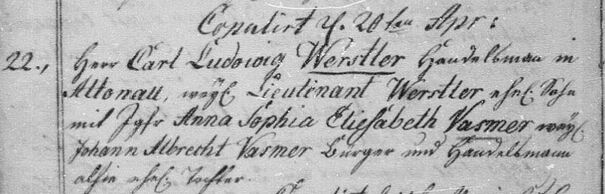 Copulirt d. 20ten Apr:
22., Herr Carl Ludowig Werstler Handelsman in
Altonau, weyl. Lieutinant Werstler ehel. Sohn
mit Jgfr Anna Sophia Eliesabeth Vasmer weyl.
Johann Albrecht Vasmer Burger und Handelsmann
alhie ehel. Tochter.